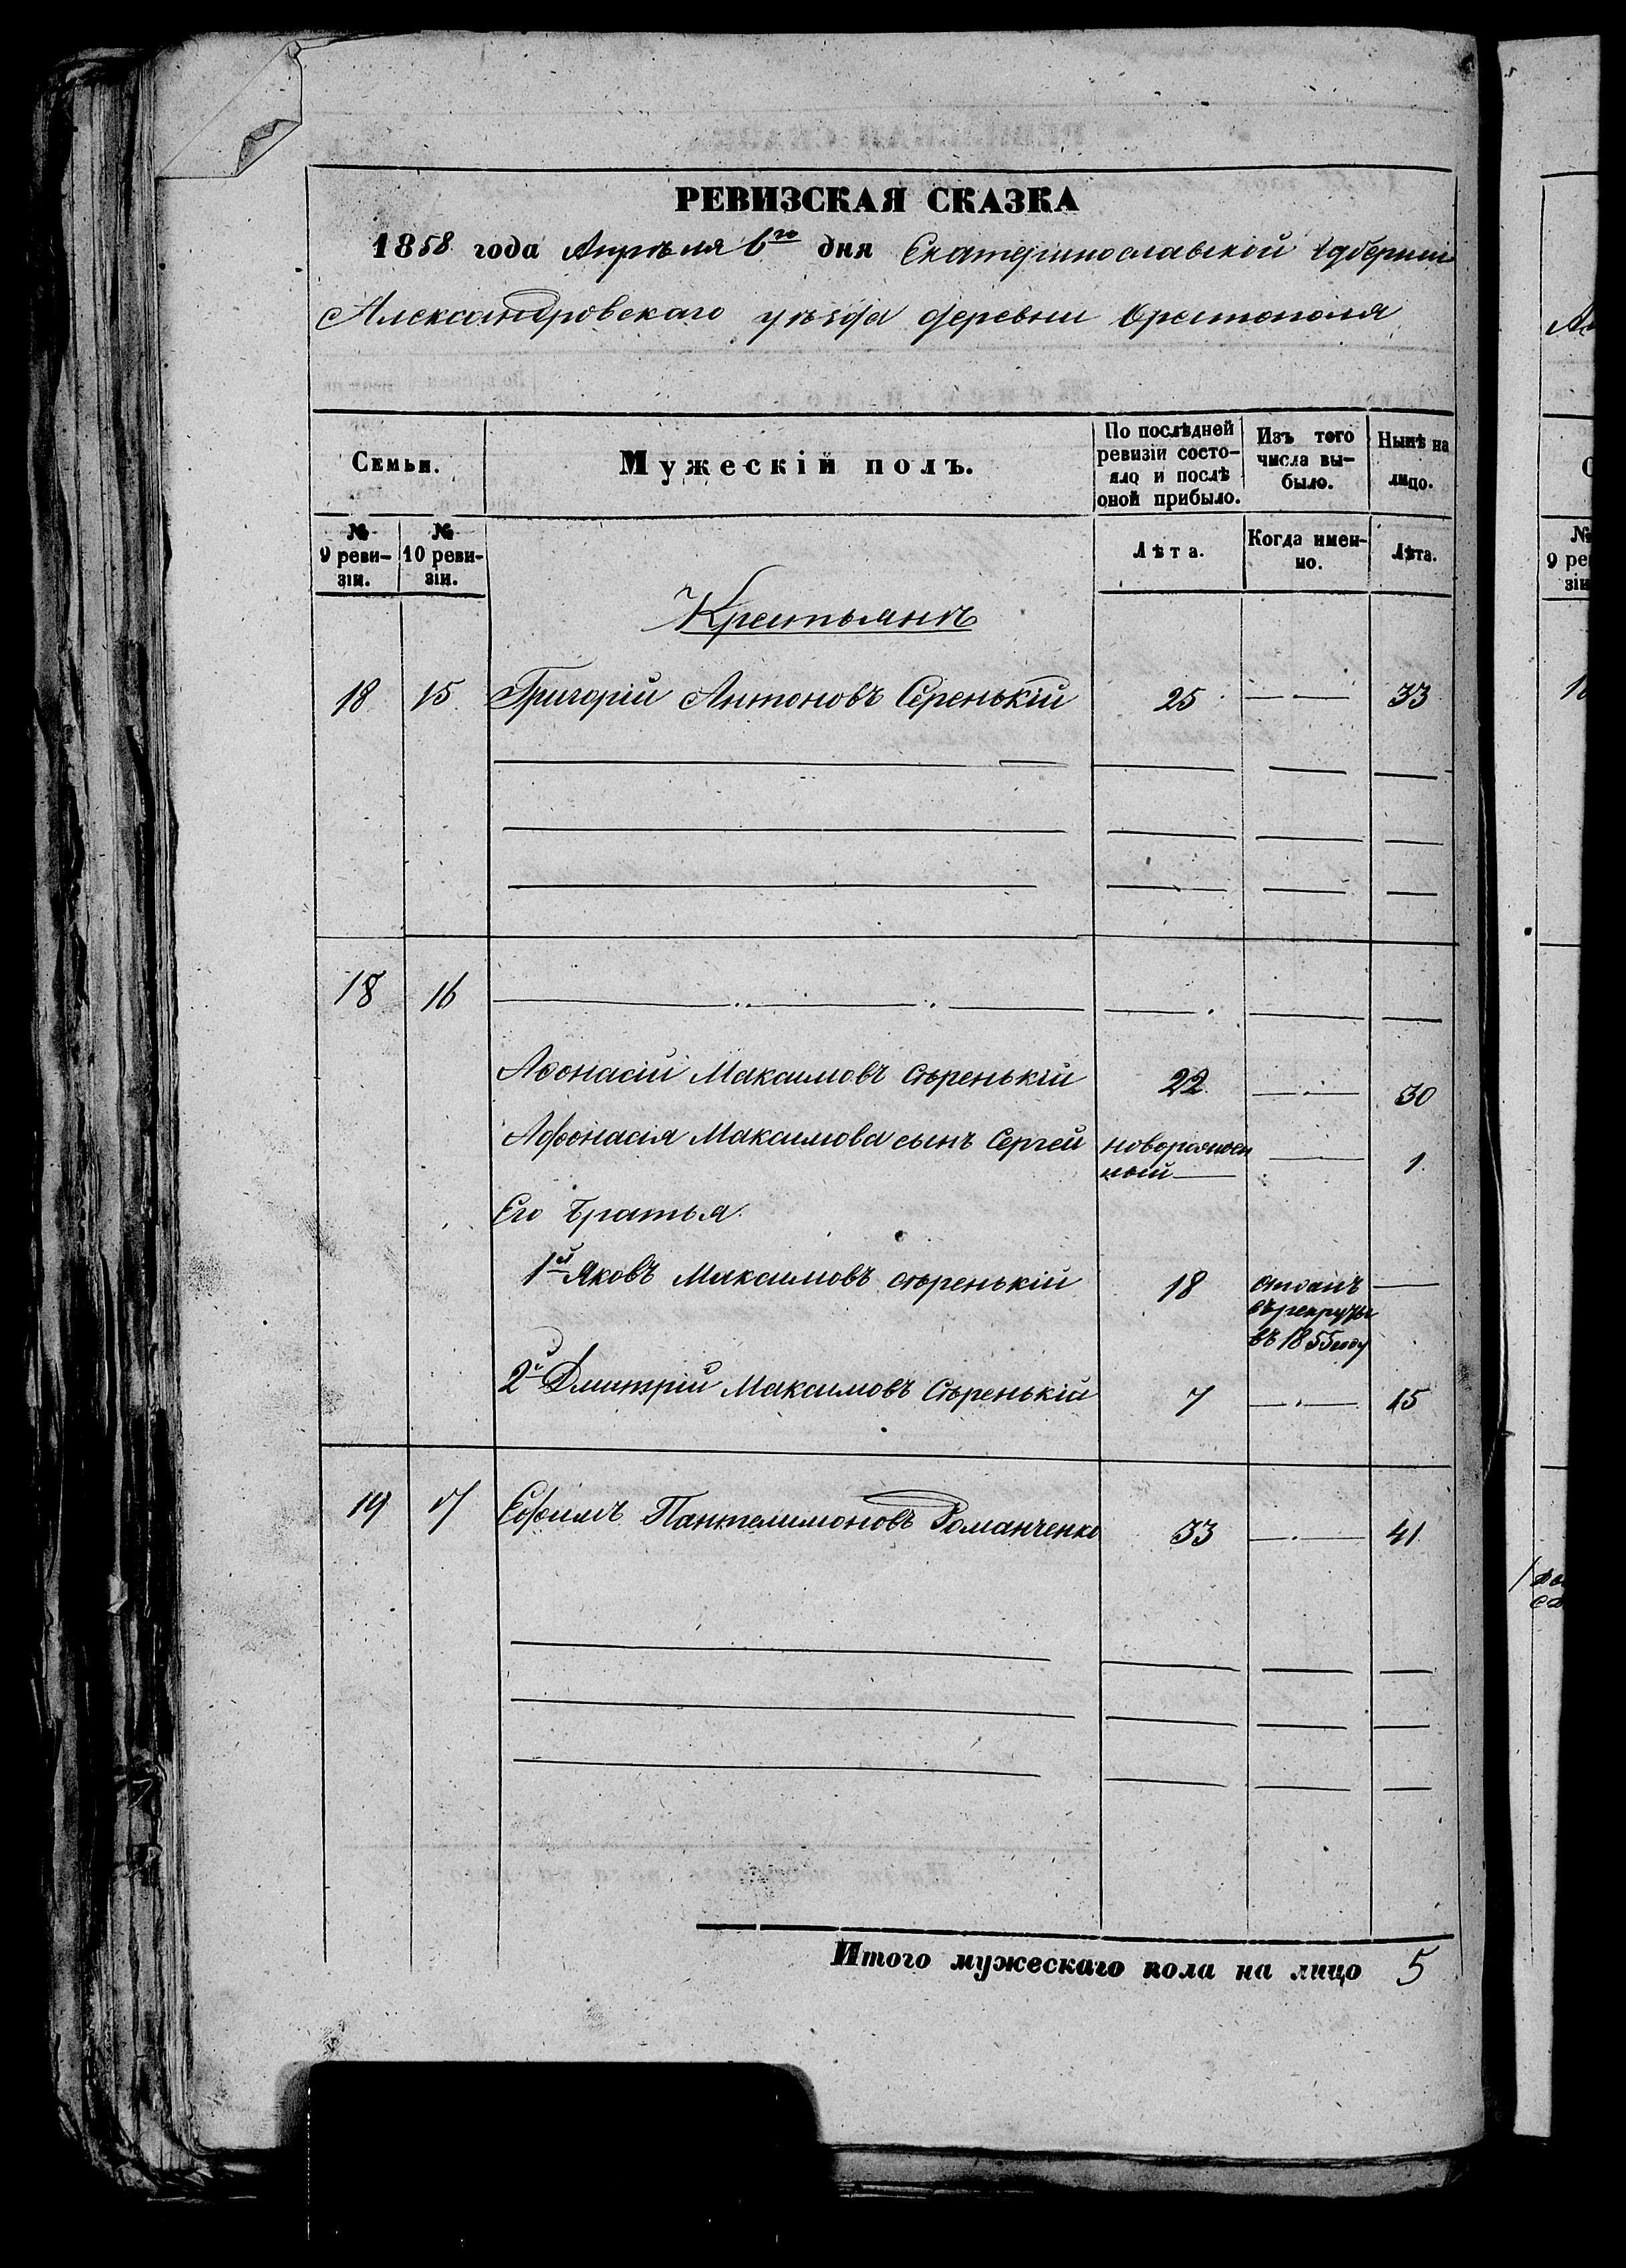 РЕВИЗСКАЯ СКАЗКА
1858 года Апрѣля 6го дня Екатеринославской Губерніи
Александровскаго уѣзда деревни Орестополя
Семьи.
Мужескій полъ.
По послѣдней ревизіи состо-
яло и послѣ оной прибыло.
Изъ того числа вы-
было.
Нынѣ на лицо.
№ 9 реви-
зіи.
№ 10 реви-
зіи.
Лѣта.
Когда имен-
но.
Лѣта.
Крестьянѣ
18 15 Григорій Антоновъ Серенькій 25 — 33
18 16
Афонасій Максимовъ Сѣренькій 22 — 30
Афонасія Максимова сынъ Сергей новорожден
ный — 1
Его братья
1й Яковъ Максимовъ Сѣренькій 18 отданъ
въ рекруты
въ 1855 году —
2й Дмитрій Максимовъ Сѣренькій 7 — 15
19 17 Ефимъ Пантелимоновъ Романченко 33 — 41
Итого мужескаго пола на лицо 5
9 ре